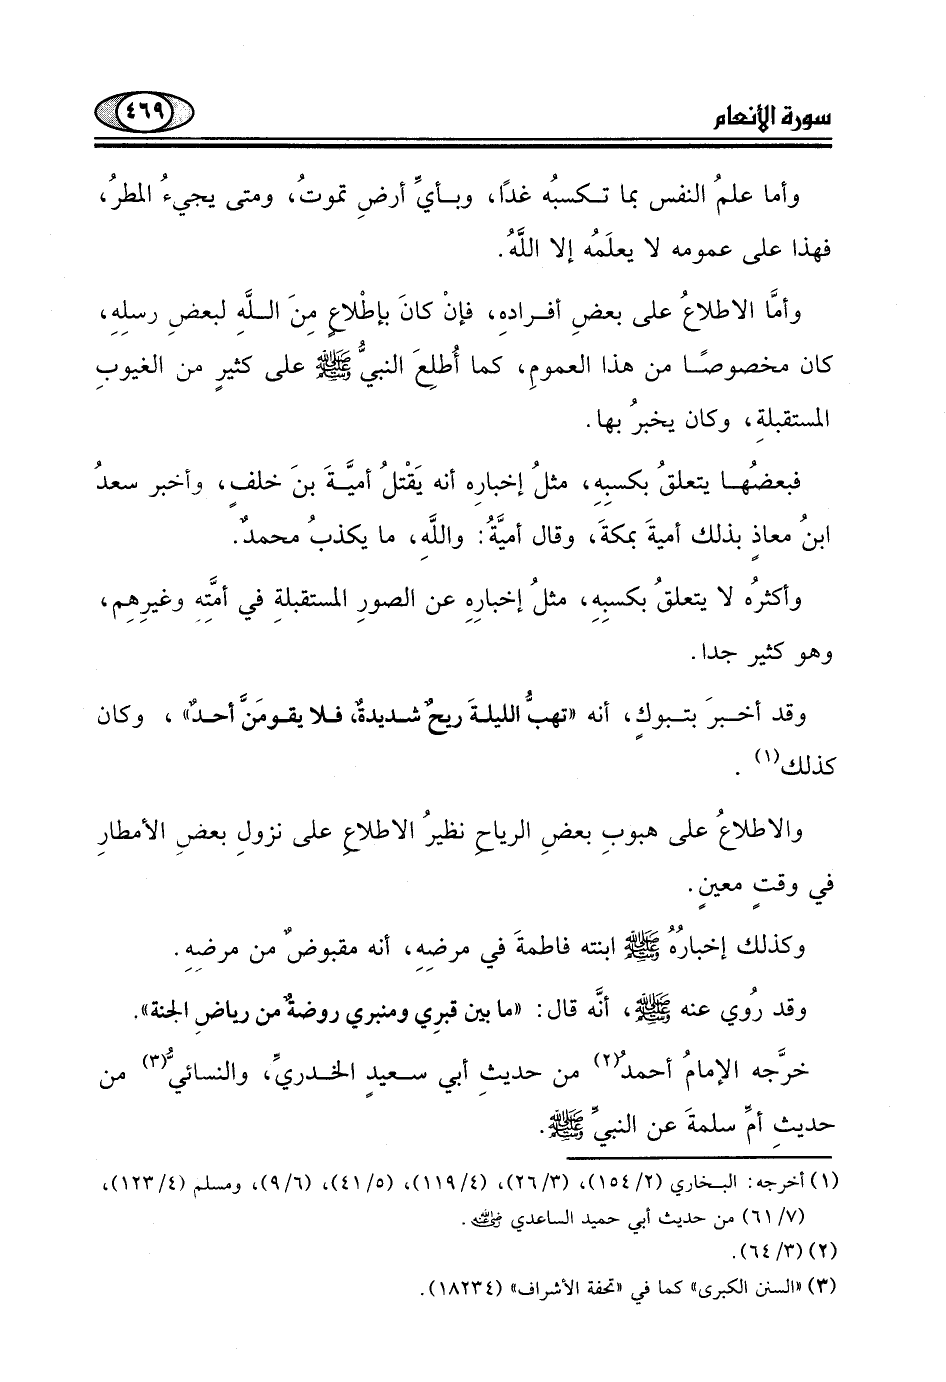 سورة الأنعام
٤٦٩
وأما علمُ النفس بما تـكسبُه غدًا، وبـأيِّ أرضٍ تموتُ، ومتى يجيءُ المطرُ،
فهذا على عمومه لا يعلَمُه إلا اللَّهُ.
وأمَّا الاطلاعُ على بعضِ أفـرادِه، فإنْ كانَ بإطْلاعٍ مِنَ اللَّهِ لبعضِ رسلِهِ،
كان مخصوصًـا من هذا العمومِ، كما أُطلِعَ النبيُّ ﷺ على كثيرٍ من الغيوبِ
المستقبلةِ، وكان يخبرُ بها.
فبعضُهـا يتعلقُ بكسبِهِ، مثلُ إخبارِه أنه يَقْتلُ أميَّـةَ بنَ خلفٍ، وأخبر سعدُ
ابنُ معاذٍ بذلك أميةَ بمكةَ، وقال أميَّةُ: واللَّهِ، ما يكذبُ محمدٌ.
وأكثرُه لا يتعلقُ بكسبِهِ، مثلُ إخبارِهِ عن الصورِ المستقبلةِ في أمتَّهِ وغيرِهِم،
وهو كثير جدا.
وقد أخـبرَ بتـبوكٍ، أنه «تهبُّ الليلـة ريحٌ شـديدةٌ، فـلا يقـومَنَّ أحـدٌ»، وكان
كذلك(١).
والاطلاعُ على هبوبِ بعضِ الرياحِ نظيرُ الاطلاعِ على نزولِ بعضِ الأمطارِ
في وقتٍ معينٍ.
وكذلك إخبارُهُ ﷺ ابنته فاطمةَ في مرضِهِ، أنه مقبوضٌ من مرضِهِ.
وقد رُوي عنه ﷺ، أنَّه قال: «ما بين قبرِي ومنبري روضةٌ من رياضِ الجنة».
خرَّجه الإمامُ أحمدُ(٢) من حديثِ أبي سـعيدٍ الخـدريِّ، والنسائيُّ(٣) من
حديثِ أمِّ سلمةَ عن النبيِّ ﷺ.
(١) أخرجه: البـخاري (٢/ ١٥٤)، (٣/ ٢٦)، (٤/ ١١٩)، (٥/ ٤١)، (٦/ ٩)، ومسلم (٤/ ١٢٣)،
(٧/ ٦١) من حديث أبي حميد الساعدي رضي الله عنه.
(٢) (٣/ ٦٤).
(٣) «السنن الكبرى» كما في «تحفة الأشراف» (١٨٢٣٤).